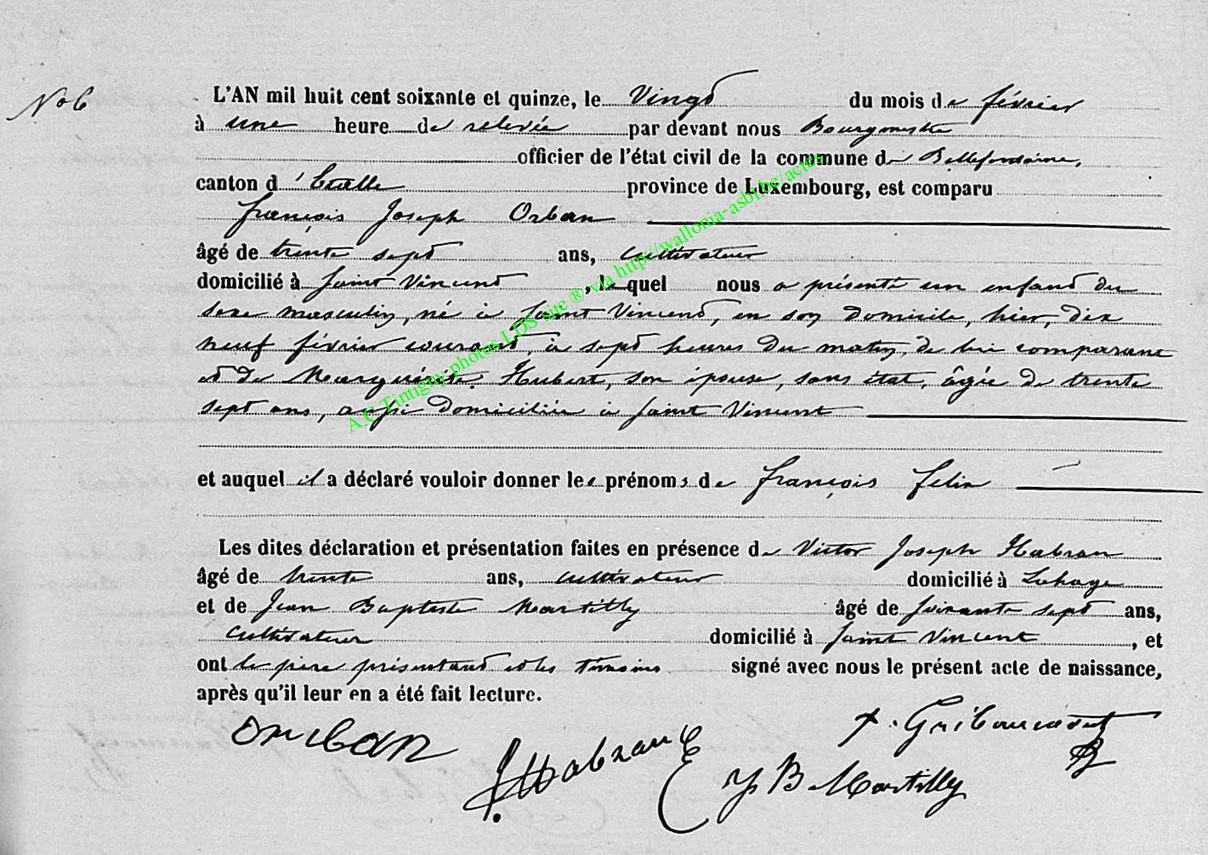 No 6
L'AN mil huit cent soixante et quinze, le Vingt du mois de février
à une heure de relevée par devant nous Bourgmestre
officier de l'état civil de la commune de Bellefontaine,
canton d'Etalle province de Luxembourg, est comparu
François Joseph Orban
âgé de trente sept ans, cultivateur
domicilié à Saint Vincent, lequel nous a présenté un enfant du
sexe masculin, né à Saint Vincent, en son domicile, hier, dix
neuf février courant, à sept heures du matin, de lui comparant
et de Marguerite Hubert, son épouse, sans état, âgée de trente
sept ans, aussi domiciliée à Saint Vincent
et auquel il a déclaré vouloir donner les prénoms de François Felix
Les dites déclaration et présentation faites en présence de Victor Joseph Habran
âgé de trente ans, cultivateur domicilié à Lahage
et de Jean Baptiste Martilly âgé de soixante sept ans,
cultivateur domicilié à Saint Vincent, et
ont le père présentant et les témoins signé avec nous le présent acte de naissance,
après qu'il leur en a été fait lecture.
orban
Habran
J B Martilly
A.C. Tintigny photos LDS site ® via http://wallonia-asbl.be/actes